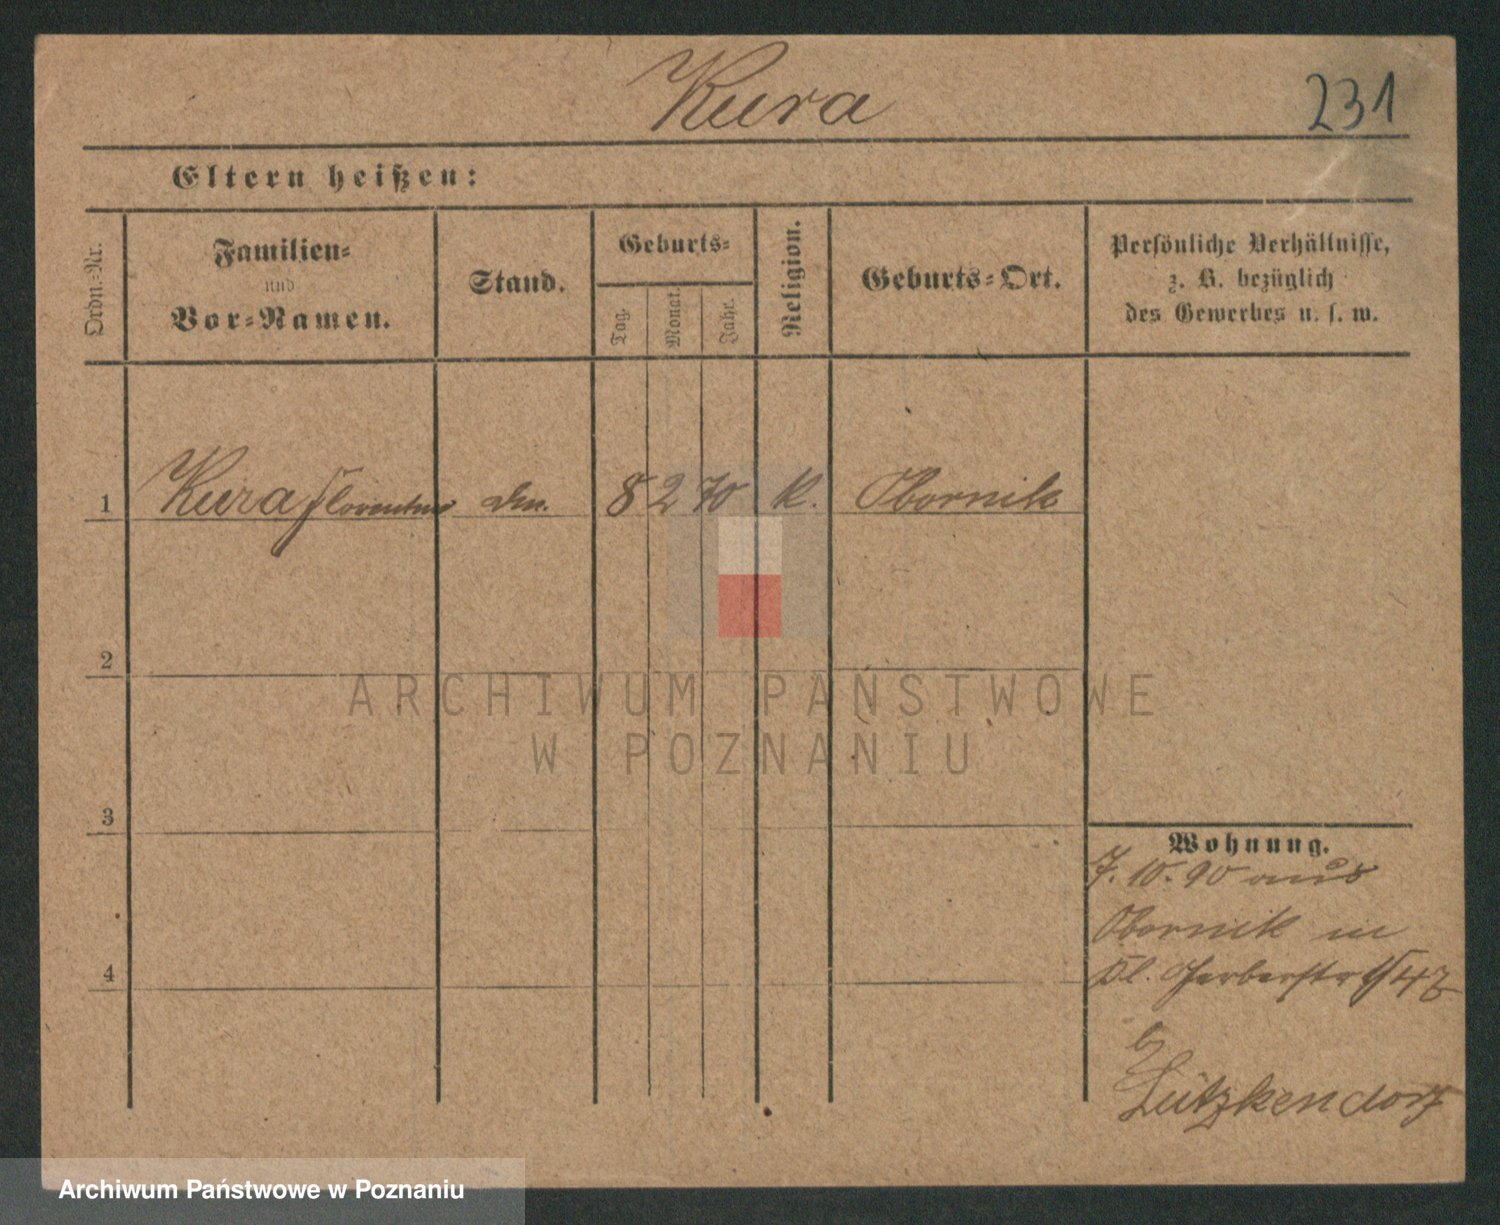 Kura
231
Eltern heißen:
Ordn.-Nr.
Familien-
und
Vor-Namen.
Stand.
Geburts-
Tag.
Monat.
Jahr.
Religion.
Geburts-Ort.
Persönliche Verhältnisse,
z. B. bezüglich
des Gewerbes u. s. w.
1 Kura 8 2 70 K. Obornik
2
ARCHIWUM PAŃSTWOWE
W POZNANIU
3
Wohnung.
7. 10. 90 aus
Obornik in
Kl. Gerberstr
4
b
Lützkendorf
Archiwum Państwowe w Poznaniu